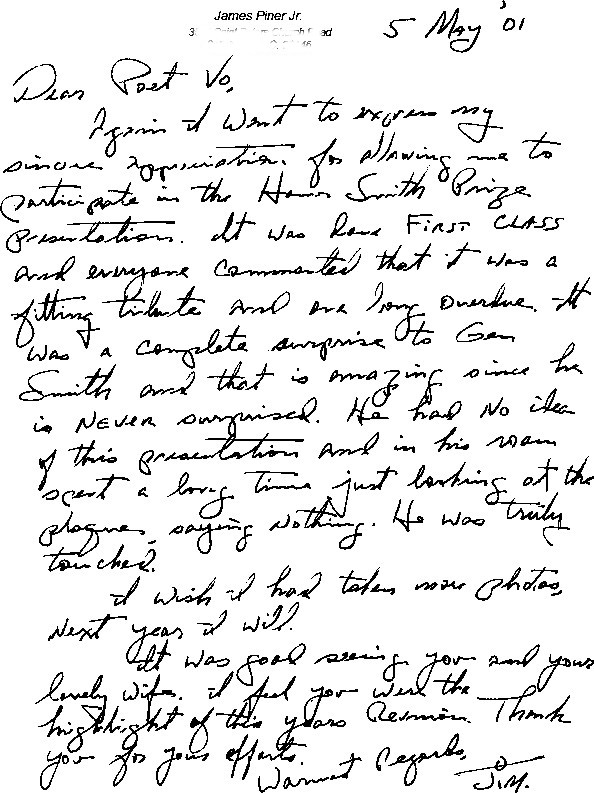 James Piner Jr.
5 May '01
Dear Poet Vo,
Again I want to express my
sincere appreciation for allowing me to
participate in the Homer Smith Prize
presentation. It was done FIRST CLASS
and everyone commented that it was a
fitting tribute and one long overdue. It
was a complete surprise to Gen
Smith and that is amazing since he
is NEVER surprised. He had no idea
of this presentation and in his room
spent a long time just looking at the
plaque, saying nothing. He was truly
touched.
I wish I had taken more photos,
Next year I will.
It was good seeing you and your
lovely wife. I feel you were the
highlight of this years Reunion. Thank
you for your efforts.
Warmest Regards,
Jim.